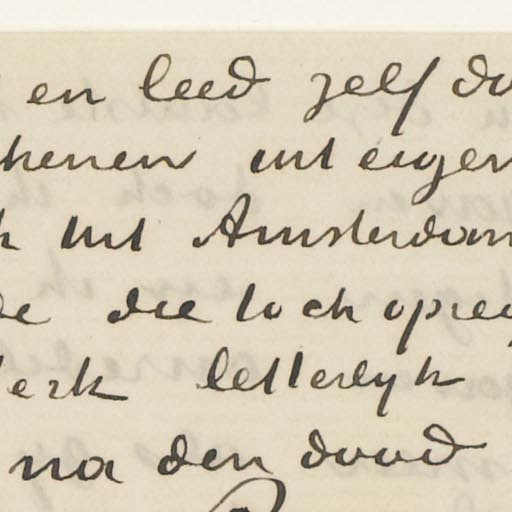 en leed zelf do
henen uit eigen
uit Amsterdam
die toch opre
erk letterlyk
na den dood